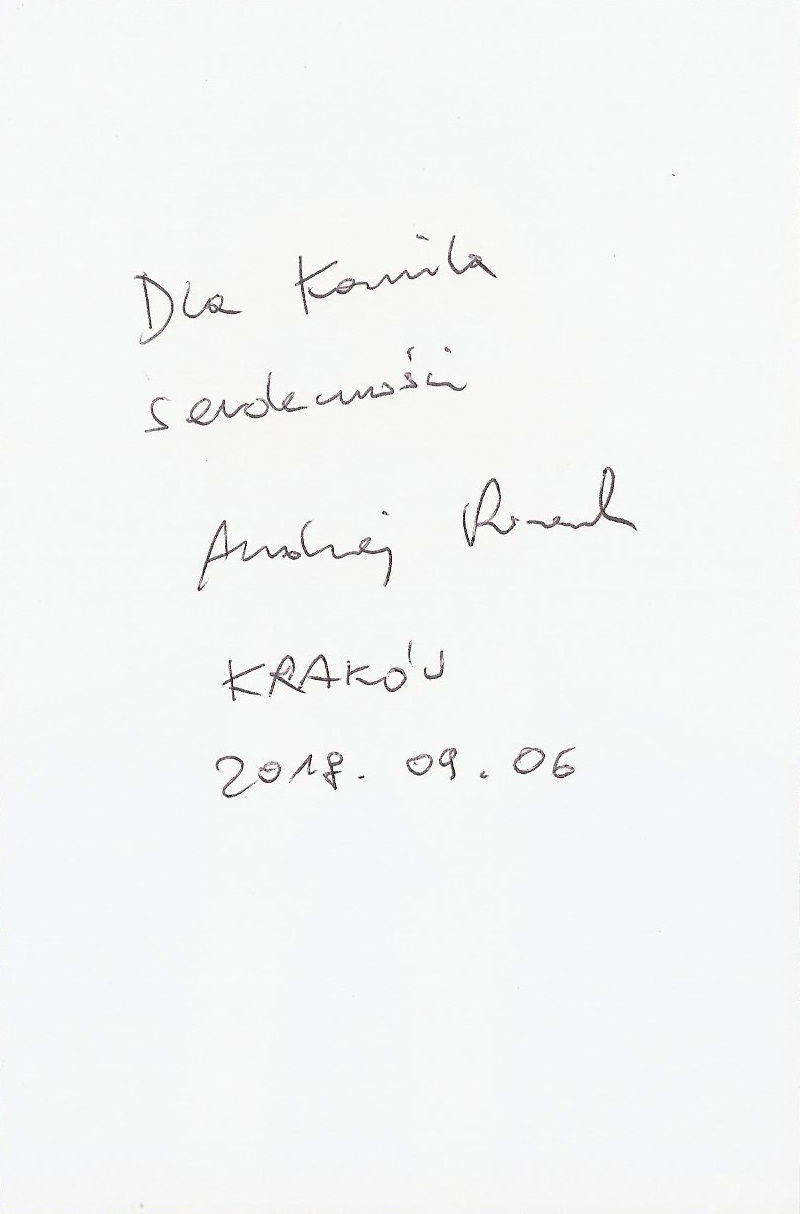 Dla Kamila
serdeczności
Andrzej
KRAKÓW
2018. 09. 06